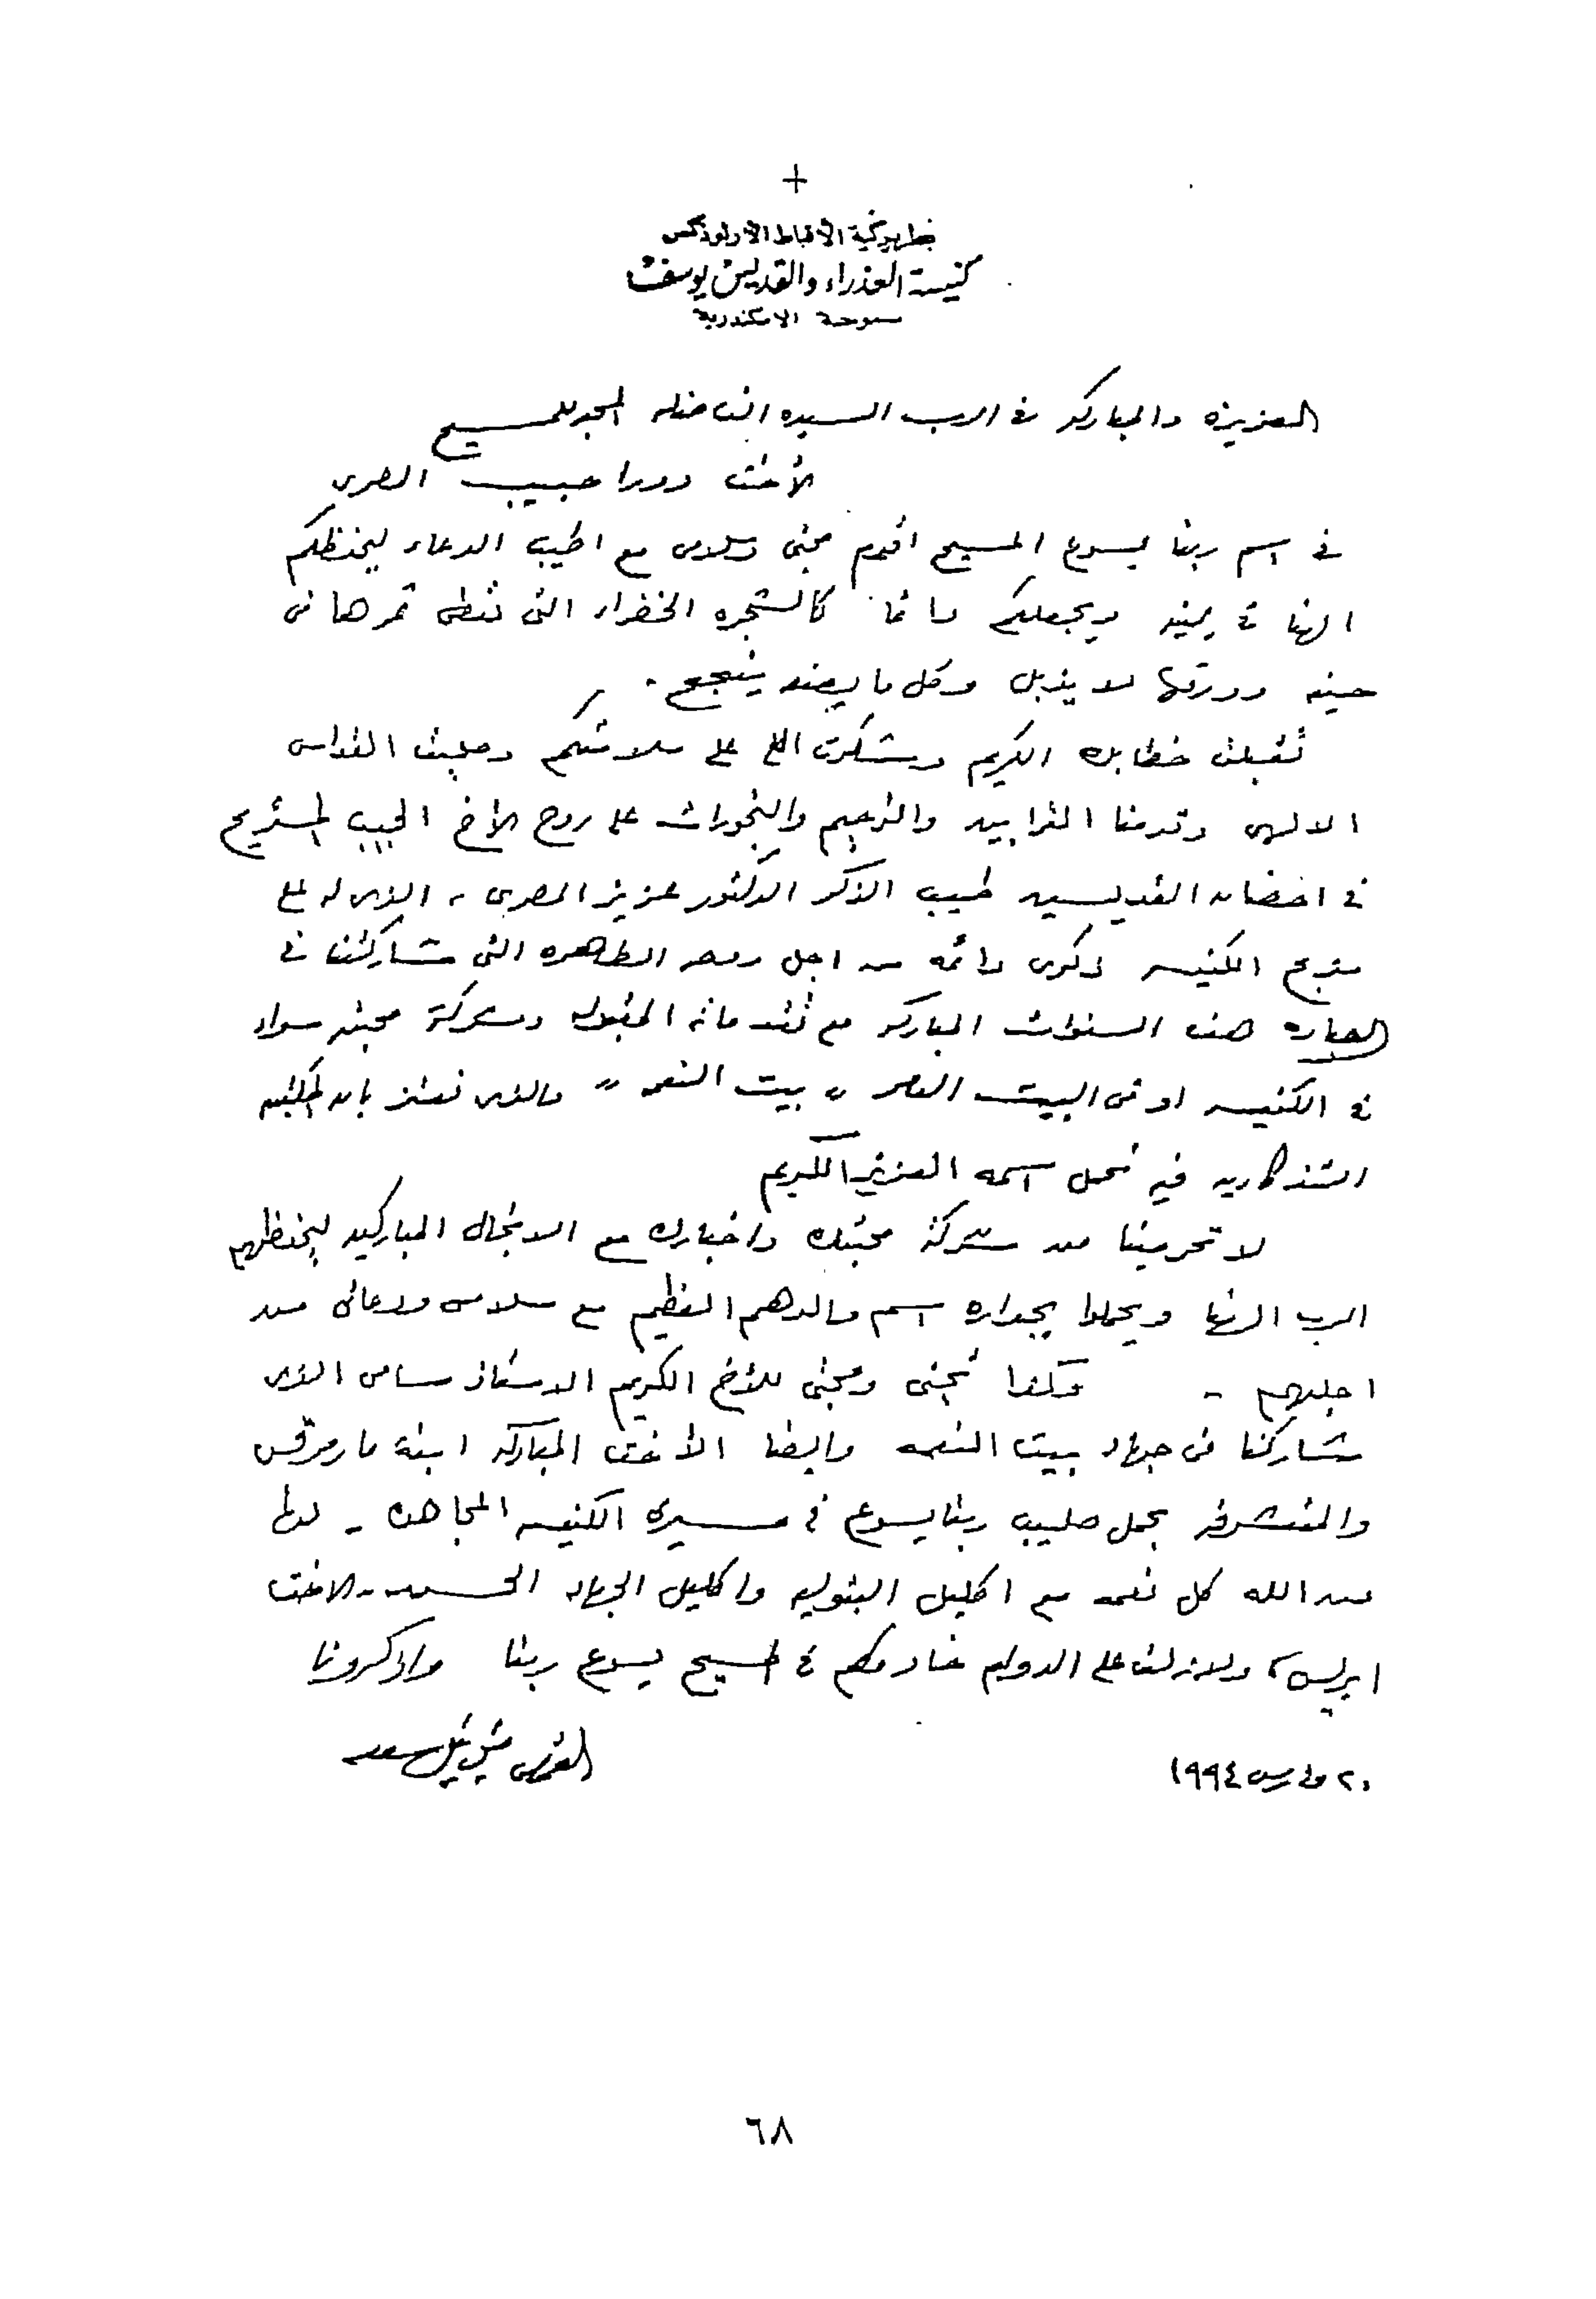 بطريركية الأقباط الأرثوذكس
كنيسة العذراء والقديس يوسف
سموحة الاسكندرية
العزيزه والمباركه فى الرب السيده الفاضله المحبه للمسيح
الأخت دورا حبيب المصرى
فى اسم ربنا يسوع المسيح اقدم محبتى وسلامى مع اطيب الدعاء ليحفظكم
الهنا فى يمينه ويجعلكم دائما كالشجره الخضراء التى تعطى ثمرها فى
حينه وورقها لا يذبل وكل ما يصنعه ينجح .
تقبلت خطابك الكريم وشكرت الله على سلامتكم وصليت القداس
الالهى وقدمنا القرابين والترحيم والبخورات على روح الأخ الحبيب المستريح
فى احضان القديسين طيب الذكر الدكتور عزيز المصرى ، الذى له على
مذبح الكنيسه ذكرى دائمه من اجل روحه الطاهره التى شاركتنا فى
العباده هذه السنوات المباركه مع تقدماته المقبوله وشركة محبته سواء
فى الكنيسه او فى البيت " بيت النعمه " والذى نعتز بان المكتبه
التذكاريه فيه تحمل اسمه العزيز الكريم
لا تحرمينا من شركة محبتك واخبارك مع الانجال المباركين ليحفظهم
الرب الهنا ويحملوا بجداره اسم والدهم العظيم مع سلامى ودعائى من
اجلهم - وكذا تحيتى ومحبتى للأخ الكريم الاستاذ سامى الذى
شاركنا فى جهاد بيت النعمه وايضا الأخت المباركه ابنة مارمرقس
والمتشرفه بحمل صليب ربنا يسوع فى مسيرة الكنيسه المجاهده - لها
من الله كل نعمه مع اكليل البتوليه واكليل الجهاد الحسن - الاخت
ايريس ، ولازلت على الدوام خادمكم فى المسيح يسوع ربنا واذكرونا
القمص ميخائيل سعد
٢٠ مارس ١٩٩٤
٦٨